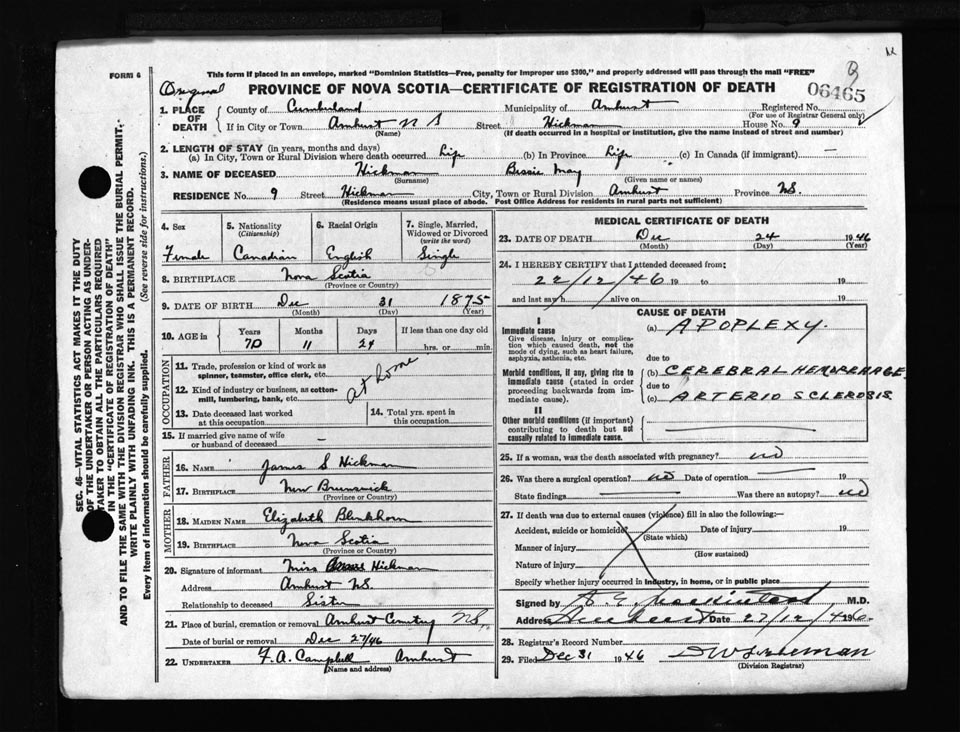 FORM 6
This form if placed in an envelope, marked "Dominion Statistics—Free, penalty for improper use $300," and properly addressed will pass through the mail "FREE"
Original
PROVINCE OF NOVA SCOTIA—CERTIFICATE OF REGISTRATION OF DEATH
06465
1. PLACE OF DEATH
County of Cumberland Municipality of Amherst Registered No.
(For use of Registrar General only)
If in City or Town Amherst N S Street Hickman House No. 9
(Name) (If death occurred in a hospital or institution, give the name instead of street and number)
2. LENGTH OF STAY (in years, months and days)
(a) In City, Town or Rural Division where death occurred Life (b) In Province Life (c) In Canada (if immigrant) —
3. NAME OF DECEASED Hickman Bessie May
(Surname) (Given name or names)
RESIDENCE No. 9 Street Hickman City, Town or Rural Division Amherst Province N.S.
(Residence means usual place of abode. Post Office Address for residents in rural parts not sufficient)
4. Sex 5. Nationality (Citizenship) 6. Racial Origin 7. Single, Married, Widowed or Divorced (write the word)
Female Canadian English Single
8. BIRTHPLACE Nova Scotia
(Province or Country)
9. DATE OF BIRTH Dec 31 1875
(Month) (Day) (Year)
10. AGE in Years Months Days If less than one day old
70 11 24 hrs. or min.
OCCUPATION
11. Trade, profession or kind of work as spinner, teamster, office clerk, etc.
at home
12. Kind of industry or business, as cotton-mill, lumbering, bank, etc.
13. Date deceased last worked at this occupation
14. Total yrs. spent in this occupation
15. If married give name of wife or husband of deceased —
FATHER
16. NAME James S Hickman
17. BIRTHPLACE New Brunswick
(Province or Country)
MOTHER
18. MAIDEN NAME Elizabeth Blenkhorn
19. BIRTHPLACE Nova Scotia
(Province or Country)
20. Signature of informant Miss Hickman
Address Amherst N.S.
Relationship to deceased Sister
21. Place of burial, cremation or removal Amherst Cemetery N.S.
Date of burial or removal Dec 27/46
22. UNDERTAKER F. A. Campbell Amherst
(Name and address)
MEDICAL CERTIFICATE OF DEATH
23. DATE OF DEATH Dec 24 1946
(Month) (Day) (Year)
24. I HEREBY CERTIFY that I attended deceased from:
22/12/46 19 to 19
and last saw h alive on 19
CAUSE OF DEATH
I
Immediate cause
Give disease, injury or complication which caused death, not the mode of dying, such as heart failure, asphyxia, asthenia, etc.
(a) APOPLEXY.
due to
Morbid conditions, if any, giving rise to immediate cause (stated in order proceeding backwards from immediate cause).
(b) CEREBRAL HEMORRHAGE
due to
(c) ARTERIO SCLEROSIS
II
Other morbid conditions (if important) contributing to death but not causally related to immediate cause.
25. If a woman, was the death associated with pregnancy? no
26. Was there a surgical operation? no Date of operation 19
State findings Was there an autopsy? no
27. If death was due to external causes (violence) fill in also the following:—
Accident, suicide or homicide Date of injury 19
(State which)
Manner of injury
(How sustained)
Nature of injury
Specify whether injury occurred in industry, in home, or in public place
Signed by M.D.
Address Amherst Date 27/12/46 19
28. Registrar's Record Number
29. Filed Dec 31 1946
(Division Registrar)
SEC. 46—VITAL STATISTICS ACT MAKES IT THE DUTY
OF THE UNDERTAKER OR PERSON ACTING AS UNDERTAKER TO OBTAIN ALL THE PARTICULARS REQUIRED
IN THE "CERTIFICATE OF REGISTRATION OF DEATH"
AND TO FILE THE SAME WITH THE DIVISION REGISTRAR WHO SHALL ISSUE THE BURIAL PERMIT.
WRITE PLAINLY WITH UNFADING INK. THIS IS A PERMANENT RECORD.
Every item of information should be carefully supplied. (See reverse side for instructions.)